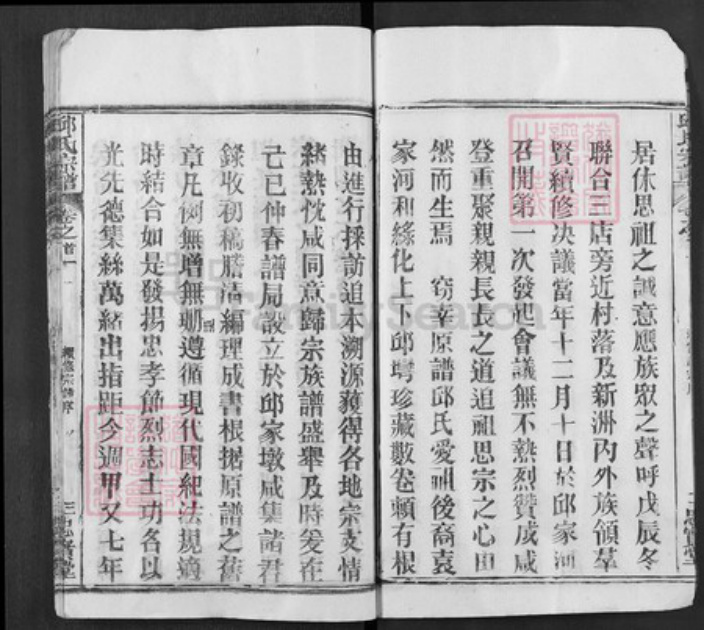 居休思祖之誠意應族眾之聲呼戊辰冬
聯合三店旁近村落及新洲內外族領羣
賢續修決議當年十二月十日於邱家河
召開第一次發起會議無不熱烈贊成咸
登重聚親親長長之道追祖思宗之心由
然而生焉 窃幸原譜邱氏愛祖後裔袁
家河和綠化上下邱塆珍藏數卷賴有根
由進行採訪追本溯源蒙得各地宗支情
緒熱忱咸同意歸宗族譜盛舉及時爰在
己巳仲春譜局設立於邱家墩咸集諸君
錄收初稿謄清編理成書根据原譜之舊
章凡例無增無刪遵循現代國紀法規適
時結合如是發揚忠孝節烈志士功各以
光先德集絲萬緒出指距今週甲又七年
邱氏宗譜
卷之首一
續修宗譜序
三思賢堂
FamilySearch